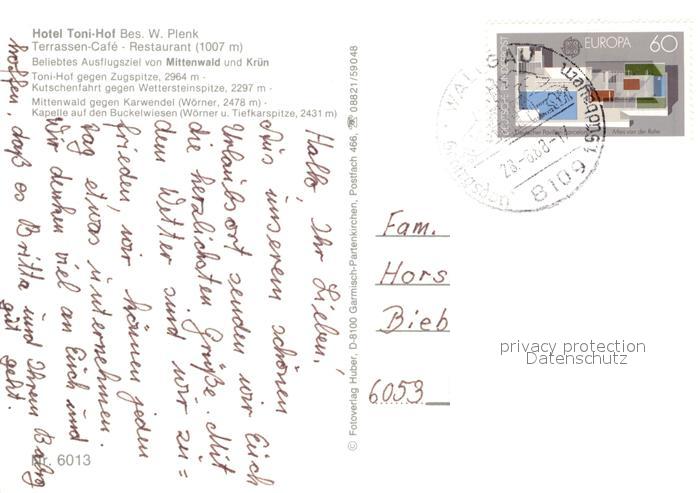 Hotel Toni-Hof Bes. W. Plenk
Terrassen-Café - Restaurant (1007 m)
Beliebtes Ausflugsziel von Mittenwald und Krün
Toni-Hof gegen Zugspitze, 2964 m -
Kutschenfahrt gegen Wettersteinspitze, 2297 m -
Mittenwald gegen Karwendel (Wörner, 2478 m) -
Kapelle auf den Buckelwiesen (Wörner u. Tiefkarspitze, 2431 m)
Hallo, Ihr Lieben!
Aus unserem schönen
Urlaubsort senden wir Euch
die herzlichsten Grüße. Mit
dem Wetter sind wir zu=
frieden, wir können jeden
Tag etwas unternehmen.
Wir denken viel an Euch und
hoffen, daß es Britta und Ihrem Baby
gut geht.
Nr. 6013
© Fotoverlag Huber, D-8100 Garmisch-Partenkirchen, Postfach 466, ☎ 08821/59048
EUROPA 60
DEUTSCHE BUNDESPOST
Deutscher Pavillon Barcelona
Mies van der Rohe
WALLGAU
8109
Fam.
Hors
Bieb
6053
privacy protection
Datenschutz